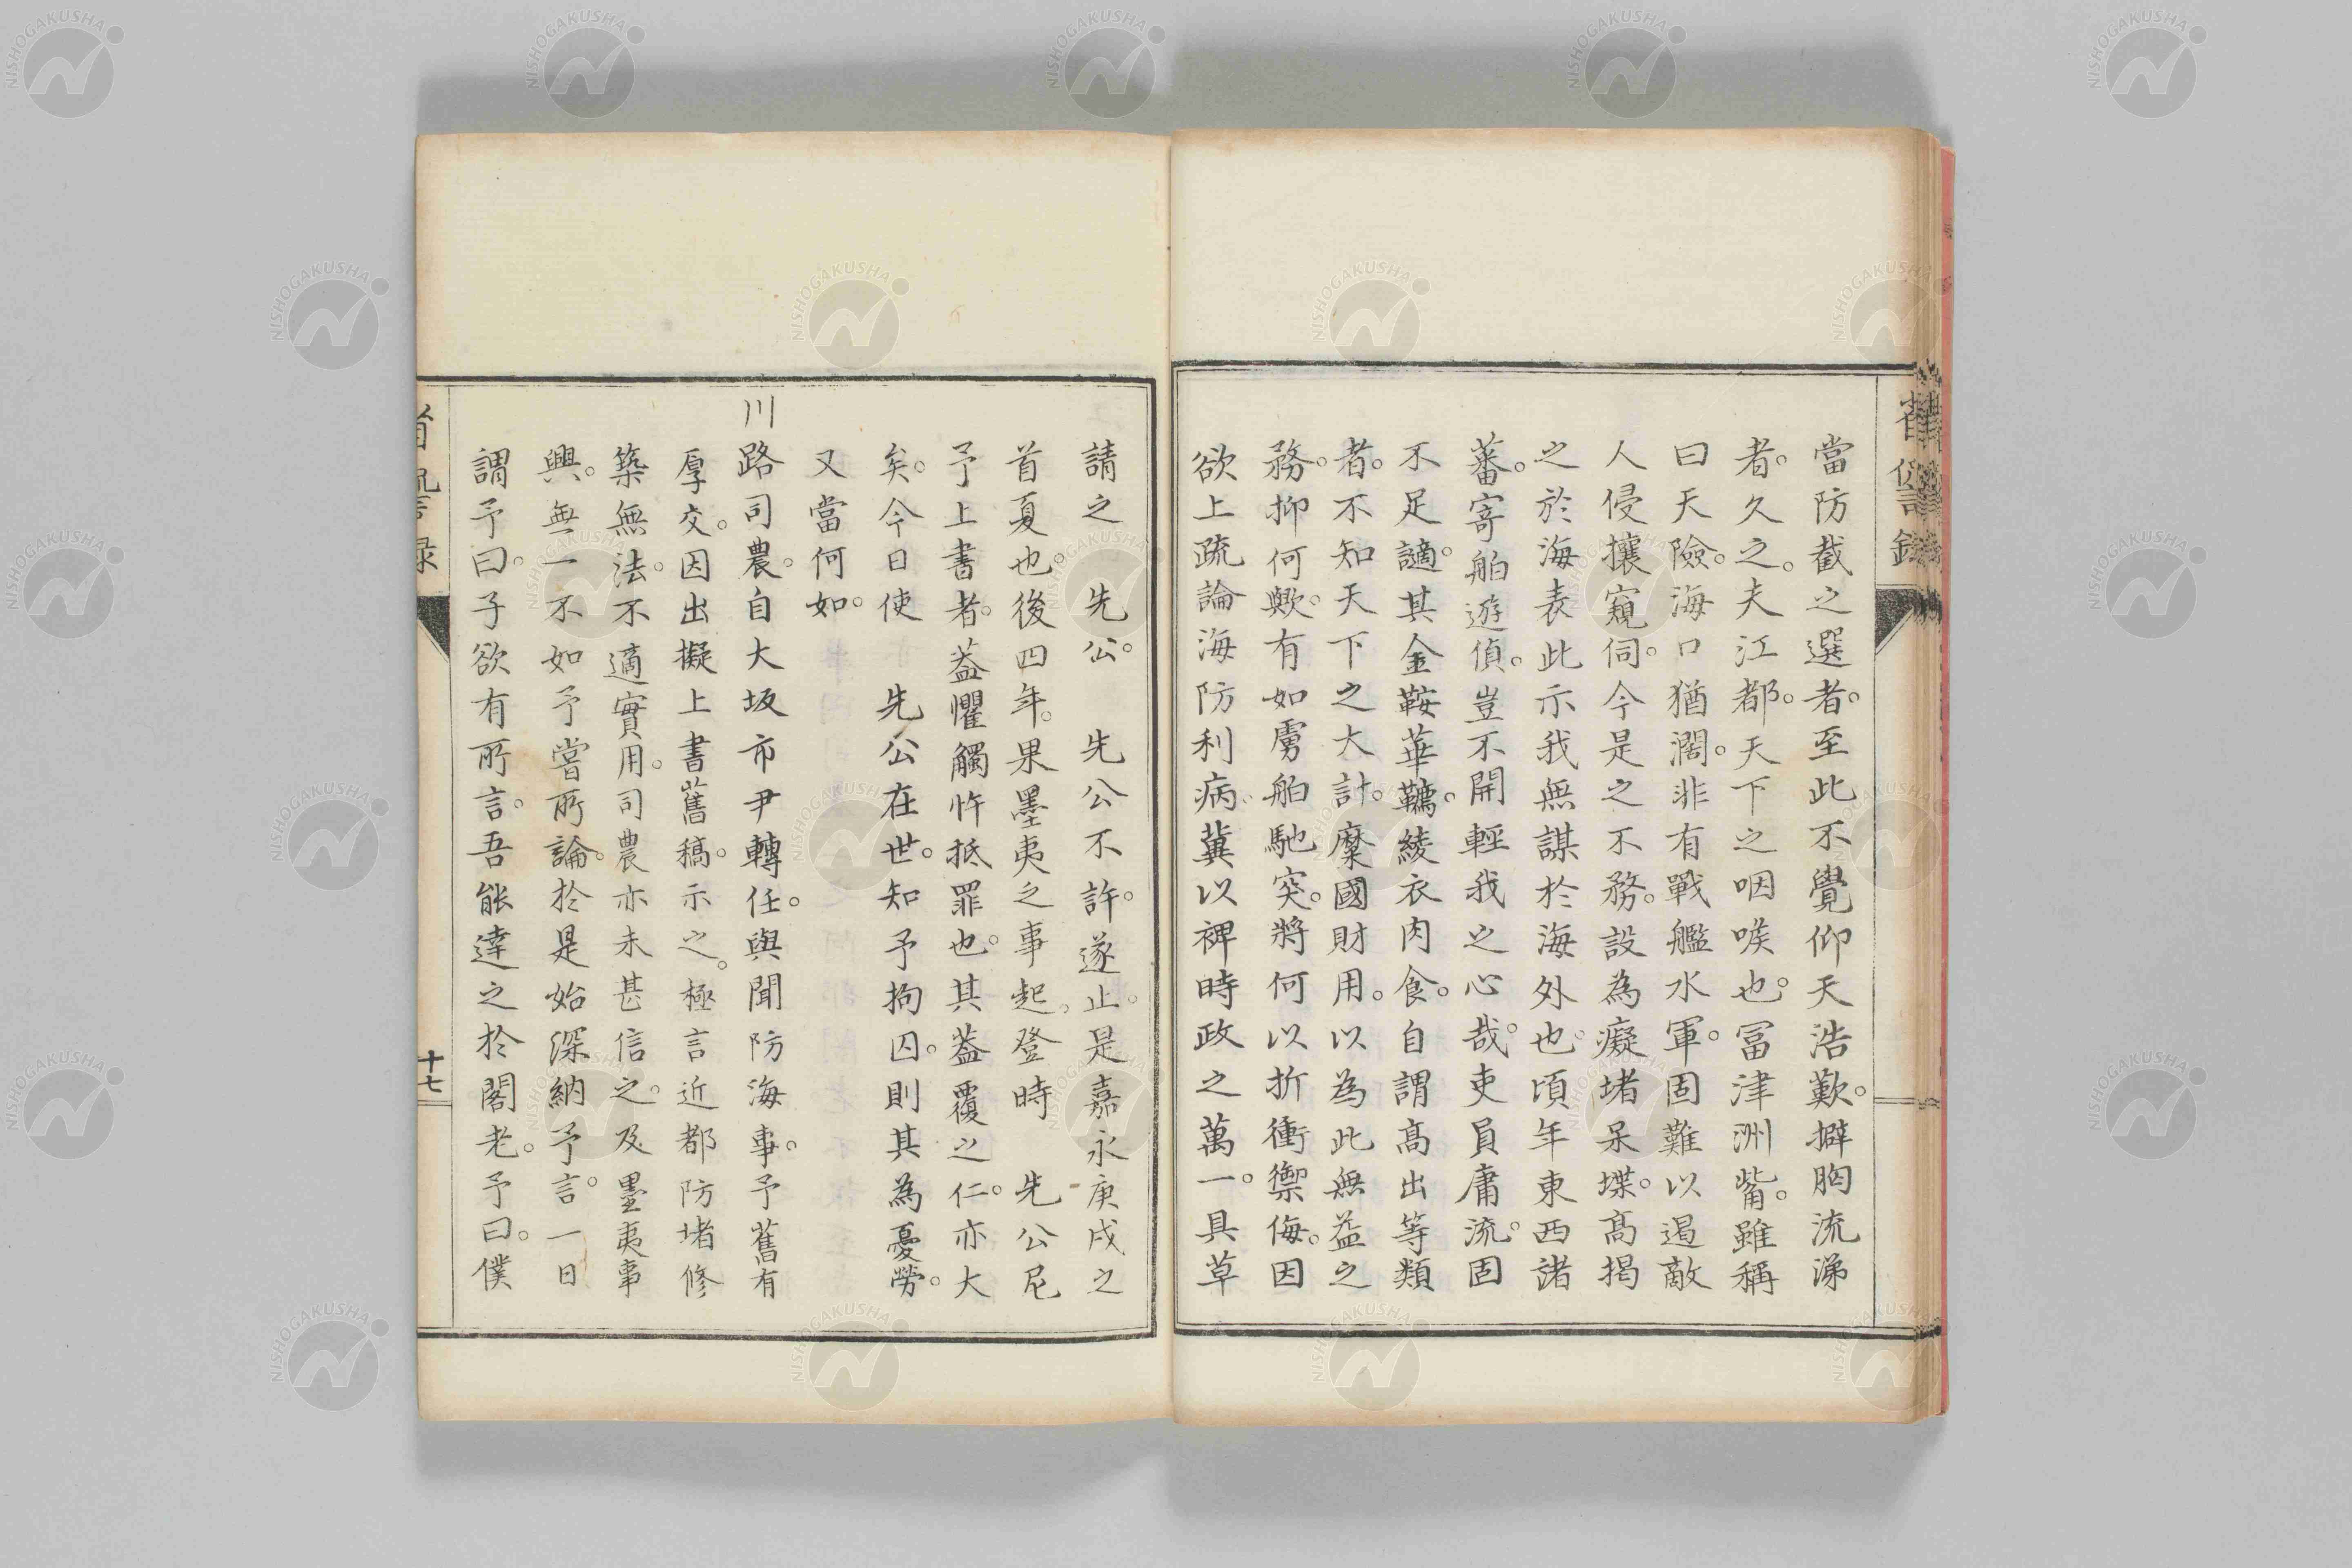 省諐録
當防截之選者。至此不覺仰天浩歎。擗胸流涕
者。久之。夫江都。天下之咽喉也。冨津洲觜。雖稱
曰天險。海口猶濶。非有戰艦水軍。固難以遏敵
人侵攘窺伺。今是之不務。設為癡堵呆堞。髙揭
之於海表此示我無謀於海外也。頃年東西諸
蕃。寄舶遊偵。豈不開輕我之心哉。吏員庸流。固
不足讁。其金鞍華韉。綾衣肉食。自謂髙出等類
者。不知天下之大計。糜國財用。以為此無益之
務。抑何歟。有如虜舶馳突。將何以折衝禦侮。因
欲上疏論海防利病。冀以裨時政之萬一。具草
請之　先公。　先公不許。遂止。是嘉永庚戌之
首夏也。後四年。果墨夷之事起。登時　先公尼
予上書者。葢懼觸忤抵罪也。其葢覆之仁。亦大
矣。今日使　先公在世。知予拘囚。則其為憂勞。
又當何如。
川路司農。自大坂市尹轉任。與聞防海事。予舊有
厚交。因出擬上書舊稿。示之。極言近都防堵修
築無法。不適實用。司農亦未甚信之。及墨夷事
興。無一不如予嘗所論。於是始深納予言。一日
謂予曰。子欲有所言。吾能達之於閣老。予曰。僕
省諐録
十七